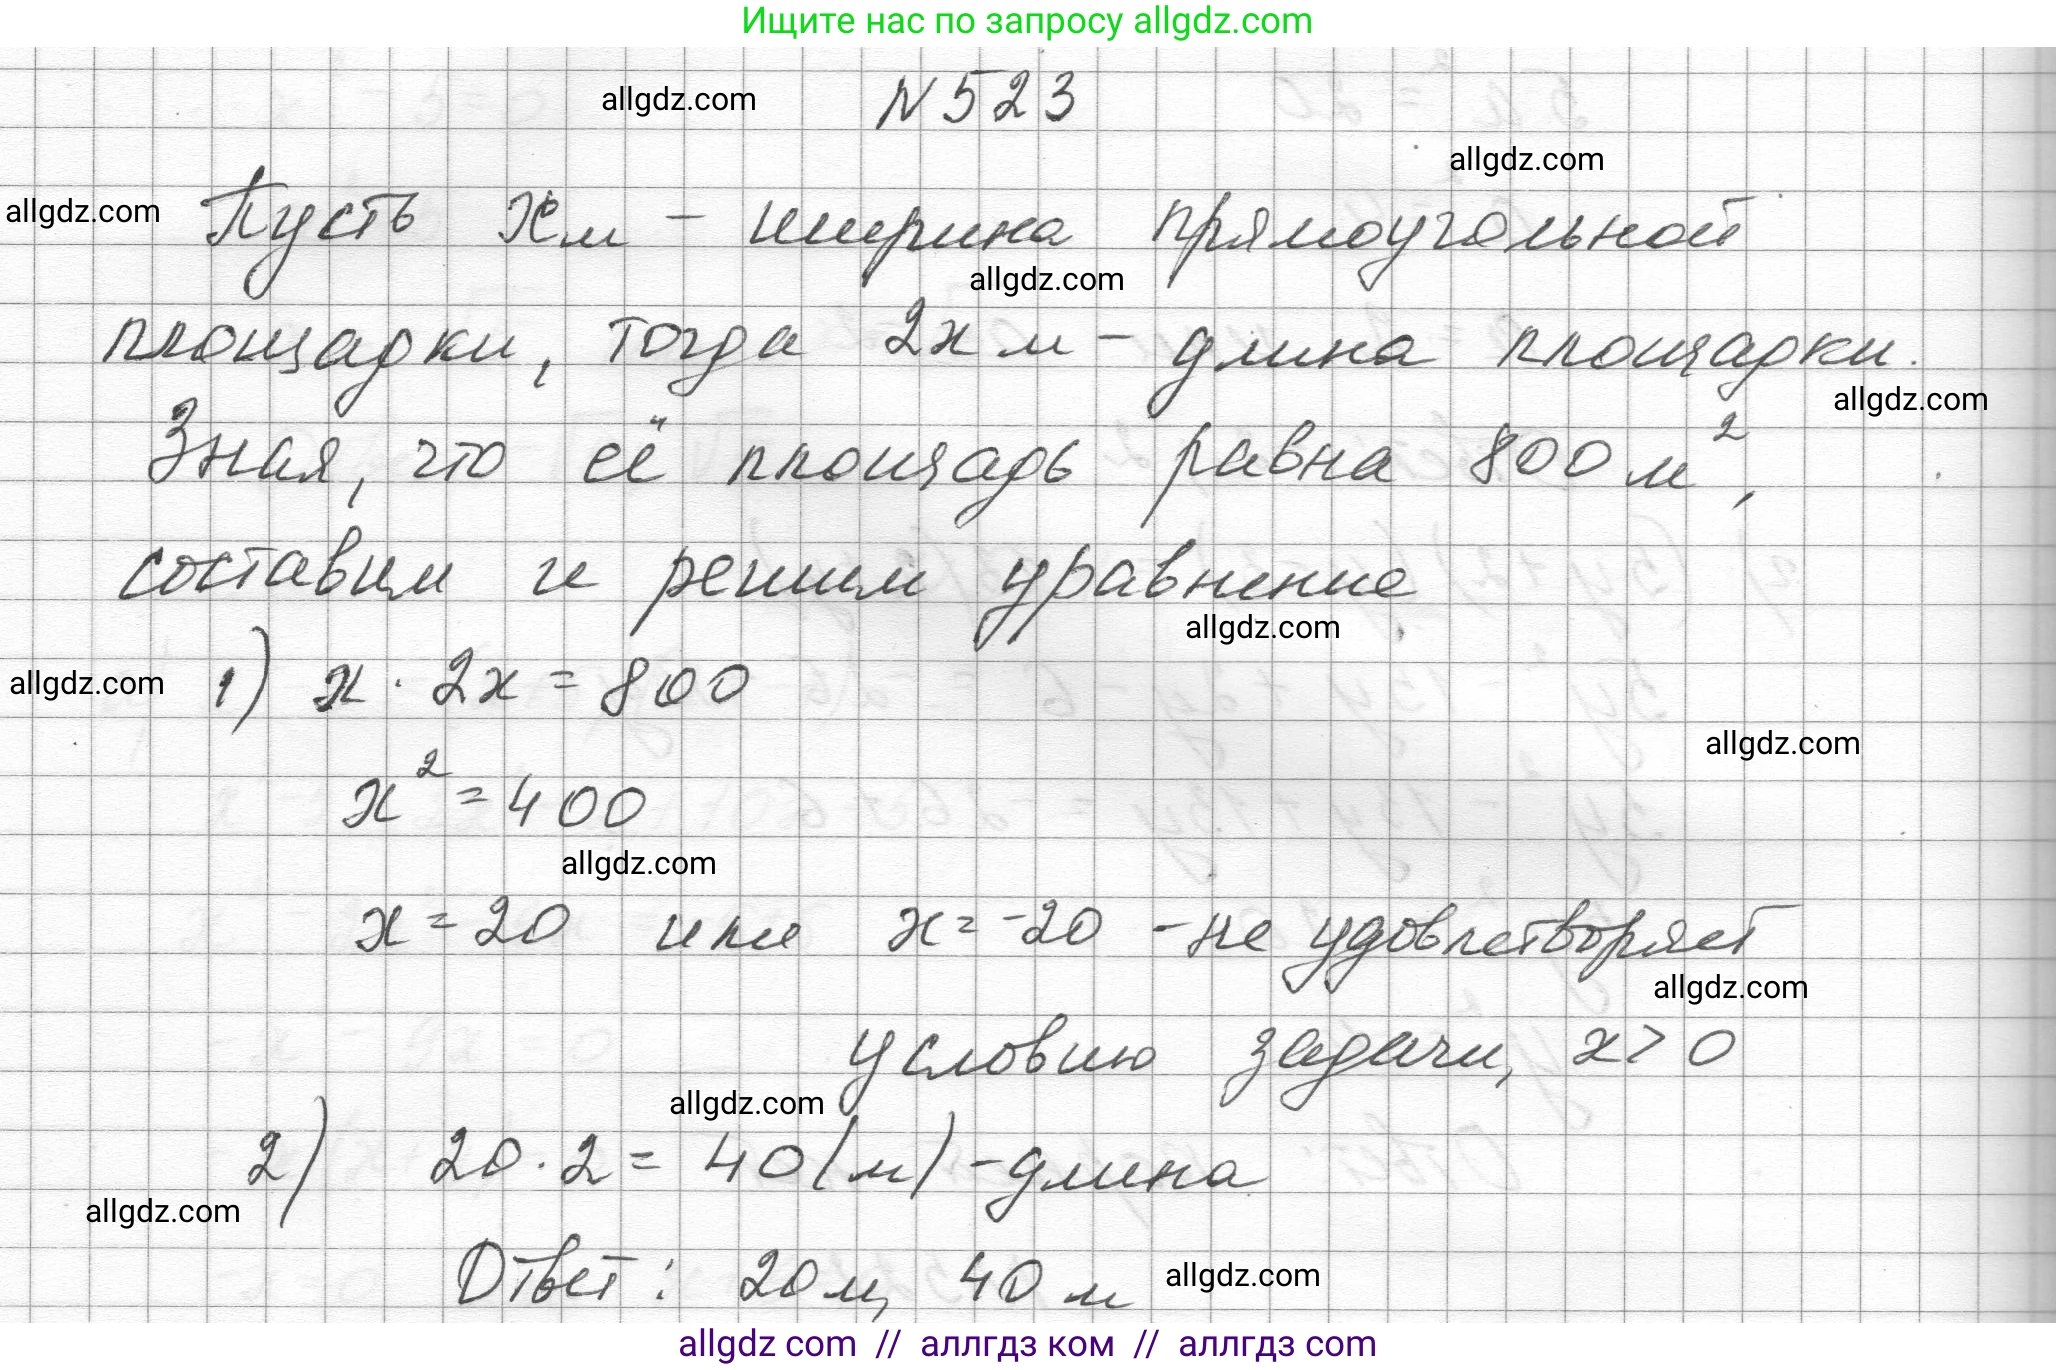 Ищите нас по запросу allgdz.com
allgdz.com
N 523
allgdz.com
allgdz.com
Пусть х м - ширина прямоугольной
allgdz.com
площадки, тогда 2х м - длина площадки.
allgdz.com
Зная, что её площадь равна 800 м²,
составим и решим уравнение
allgdz.com
allgdz.com
1) х · 2х = 800
allgdz.com
х² = 400
allgdz.com
х = 20 или х = -20 - не удовлетворяет
allgdz.com
условию задачи, х > 0
allgdz.com
2) 20 · 2 = 40 (м) - длина
allgdz.com
Ответ: 20 м, 40 м
allgdz.com
allgdz com // аллгдз ком // аллгдз com